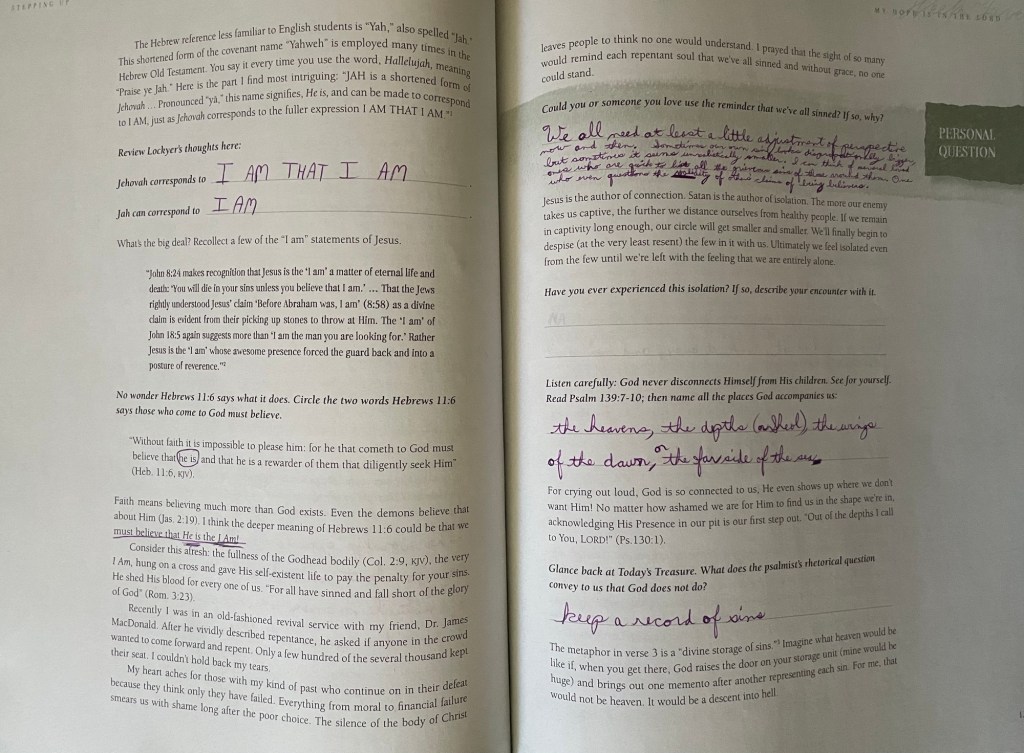 STEPPING UP
The Hebrew reference less familiar to English students is "Yah," also spelled "Jah."
This shortened form of the covenant name "Yahweh" is employed many times in the
Hebrew Old Testament. You say it every time you use the word, Hallelujah, meaning
"Praise ye Jah." Here is the part I find most intriguing: "JAH is a shortened form of
Jehovah … Pronounced "yä," this name signifies, He is, and can be made to correspond
to I AM, just as Jehovah corresponds to the fuller expression I AM THAT I AM."¹
Review Lockyer's thoughts here:
Jehovah corresponds to I AM THAT I AM
Jah can correspond to I AM
What's the big deal? Recollect a few of the "I am" statements of Jesus.
"John 8:24 makes recognition that Jesus is the 'I am' a matter of eternal life and
death: 'You will die in your sins unless you believe that I am.' … That the Jews
rightly understood Jesus' claim 'Before Abraham was, I am' (8:58) as a divine
claim is evident from their picking up stones to throw at Him. The 'I am' of
John 18:5 again suggests more than 'I am the man you are looking for.' Rather
Jesus is the 'I am' whose awesome presence forced the guard back and into a
posture of reverence."²
No wonder Hebrews 11:6 says what it does. Circle the two words Hebrews 11:6
says those who come to God must believe.
"Without faith it is impossible to please him: for he that cometh to God must
believe that he is, and that he is a rewarder of them that diligently seek Him"
(Heb. 11:6, KJV).
Faith means believing much more than God exists. Even the demons believe that
about Him (Jas. 2:19). I think the deeper meaning of Hebrews 11:6 could be that we
must believe that He is the I Am!
Consider this afresh: the fullness of the Godhead bodily (Col. 2:9, KJV), the very
I Am, hung on a cross and gave His self-existent life to pay the penalty for your sins.
He shed His blood for every one of us. "For all have sinned and fall short of the glory
of God" (Rom. 3:23).
Recently I was in an old-fashioned revival service with my friend, Dr. James
MacDonald. After he vividly described repentance, he asked if anyone in the crowd
wanted to come forward and repent. Only a few hundred of the several thousand kept
their seat. I couldn't hold back my tears.
My heart aches for those with my kind of past who continue on in their defeat
because they think only they have failed. Everything from moral to financial failure
smears us with shame long after the poor choice. The silence of the body of Christ
MY HOPE IS IN THE LORD
leaves people to think no one would understand. I prayed that the sight of so many
would remind each repentant soul that we've all sinned and without grace, no one
could stand.
Could you or someone you love use the reminder that we've all sinned? If so, why?
PERSONAL
QUESTION
We all need at least a little adjustment of perspective
now and then. Sometimes our own sin looks disproportionally bigger,
but sometimes it seems unrealistically smaller. I can think of several loved
ones who are quick to list all the grievous sins of those around them. One
who even questions the of their claims of being believers.
Jesus is the author of connection. Satan is the author of isolation. The more our enemy
takes us captive, the further we distance ourselves from healthy people. If we remain
in captivity long enough, our circle will get smaller and smaller. We'll finally begin to
despise (at the very least resent) the few in it with us. Ultimately we feel isolated even
from the few until we're left with the feeling that we are entirely alone.
Have you ever experienced this isolation? If so, describe your encounter with it.
NA
Listen carefully: God never disconnects Himself from His children. See for yourself.
Read Psalm 139:7-10; then name all the places God accompanies us:
the heavens, the depths (or sheol), the wings
of the dawn, or the far side of the sea
For crying out loud, God is so connected to us, He even shows up where we don't
want Him! No matter how ashamed we are for Him to find us in the shape we're in,
acknowledging His Presence in our pit is our first step out. "Out of the depths I call
to You, LORD!" (Ps. 130:1).
Glance back at Today's Treasure. What does the psalmist's rhetorical question
convey to us that God does not do?
keep a record of sins
The metaphor in verse 3 is a "divine storage of sins."³ Imagine what heaven would be
like if, when you get there, God raises the door on your storage unit (mine would be
huge) and brings out one memento after another representing each sin. For me, that
would not be heaven. It would be a descent into hell.